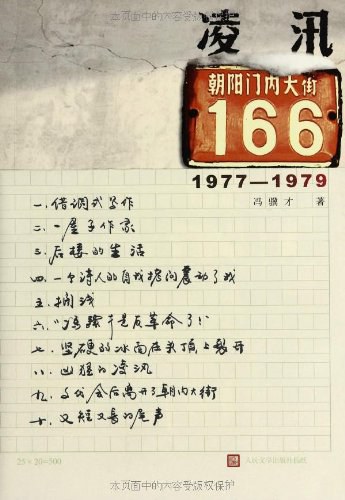 本页面中的内容受版权保护
凌汛
朝阳门内大街
166
1977—1979
冯骥才 著
一、借调式写作
二、一屋子作家
三、后楼的生活
四、一个诗人的自我拷问震动了我
五、搁浅
六、“
反革命了！”
七、坚硬的冰面在头顶上裂开
八、凶猛的凌汛
九、文代会后离开了朝内大街
十、又短又长的尾声
25×20=500
人民文学出版社
本页面中的内容受版权保护